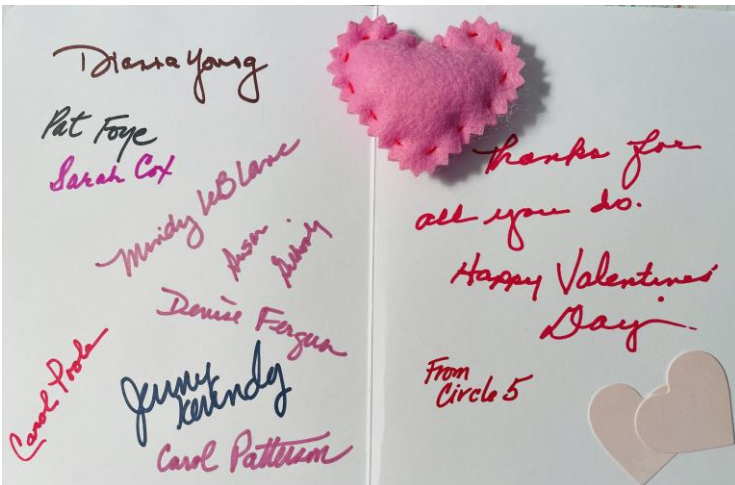 Diana Young
Pat Foye
Sarah Cox
Mindy LeBlanc
Susan
Denise Ferguson
Carol Poole
Jenny Kennedy
Carol Patterson
Thanks for
all you do.
Happy Valentines'
Day.
From
Circle 5